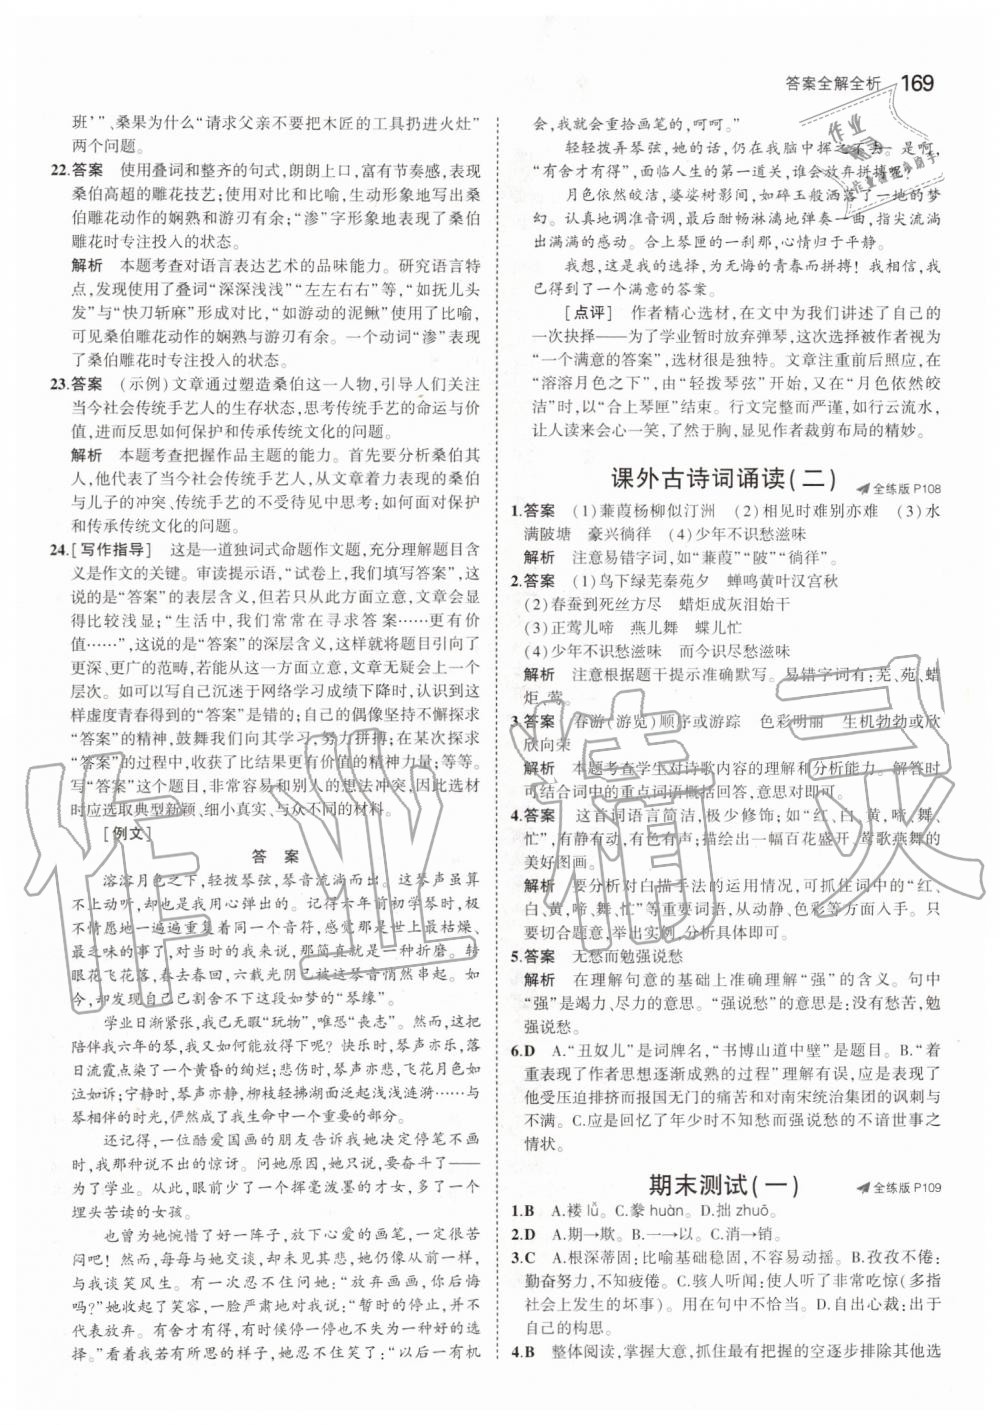 答案全解全析 169
班’”、桑果为什么“请求父亲不要把木匠的工具扔进火灶”
两个问题。
22.答案 使用叠词和整齐的句式,朗朗上口,富有节奏感,表现了桑
伯高超的雕花技艺;使用对比和比喻,生动形象地写出桑
伯雕花动作的娴熟和游刃有余;“渗”字形象地表现了桑伯
雕花时专注投入的状态。
解析 本题考查对语言表达艺术的品味能力。研究语言特
点,发现使用了叠词“深深浅浅”“左左右右”等,“如抚儿头
发”与“快刀斩麻”形成对比,“如游动的泥鳅”使用了比喻,
可见桑伯雕花动作的娴熟与游刃有余。一个动词“渗”表现
了桑伯雕花时专注投入的状态。
23.答案 (示例)文章通过塑造桑伯这一人物,引导人们关注
当今社会传统手艺人的生存状态,思考传统手艺的命运与价
值,进而反思如何保护和传承传统文化的问题。
解析 本题考查把握作品主题的能力。首先要分析桑伯其
人,他代表了当今社会传统手艺人,从文章着力表现了桑伯
与儿子的冲突、传统手艺的不受重视中思考,如何面对保护
和传承传统文化的问题。
24.[写作指导] 这是一道独词式命题作文题,充分理解题目含
义是作文的关键。审读提示语,“试卷上,我们填写答案”,这
说的是“答案”的表层含义,但只从此方面立意,文章立意会
比较浅显;“生活中,我们常常在寻求答案……更有价
值……”,这说的是“答案”的深层含义,这样就将题目引向了
更深、更广的范畴,若能从这一方面立意,文章无疑更上一个
层次。如可以写自己沉迷于网络学习成绩下降时,认识到这
样虚度青春得到的“答案”是错的;自己的偶像坚持不懈探求
“答案”的精神,鼓舞我们向其学习,努力拼搏;在某次探求
“答案”的过程中,收获了比结果更有价值的精神力量;等等。
写“答案”这个题目,非常容易和别人的想法冲突,因此选材
时应选取典型新颖、细小真实、与众不同的材料。
[例文]
答 案
溶溶月色之下,轻拨琴弦,琴音流淌而出。这琴声虽算
不上动听,却也是我用心弹出的。记得六年前初学琴时,极
不情愿地一遍遍重复着相同的音符,感觉那是世界上最枯燥、
最乏味的事了,对当时的我来说,那简直就是一种折磨。转
眼花飞花落,春去春回,六载光阴已被这琴音悄然串起。如
今,却发现自己已割舍不下这段如梦的“琴缘”。
学业日渐紧张,我已无暇“玩物”,唯恐“丧志”。然而,这把
陪伴我六年的琴,我又如何能放得下呢!快乐时,琴声亦乐,落
日流霞点染了一个黄昏的绚烂;悲伤时,琴声亦悲,飞花月色如
泣如诉;宁静时,琴声亦宁静,柳枝轻拂湖面泛起浅浅涟漪……
与琴相伴的时光,俨然成了我生命中一个重要的部分。
还记得,一位酷爱国画的朋友告诉我她决定停笔不画
时,我那种说不出的惊讶。问她原因,她只说,要奋斗了——
为了学业。从此,校园里少了一个挥毫泼墨的才女,多了一个
埋头苦读的女孩。
也曾为她惋惜了好一阵子,放下心爱的画笔,一定很苦
闷吧!然而,每每与她交谈,却未见其悲,仍像从前一样
与我谈笑风生。有一次,我忍不住问她:“放弃画画,不可惜
吗?”她收起了笑容,一脸严肃地对我说:“暂时的停止,并不
代表放弃。有舍才有得,我想这一停也不失为一种更好的选
择。”看着我若有所思的样子,她忽然又笑道:“以后一有机
会,我就会重拾画笔的,呵呵。”
轻轻拨弄琴弦,她的话,仍在我脑中挥之不去。是啊,
“有舍才有得”,面临人生的第一道关,谁能放弃拼搏呢?
月色依然皎洁,婆娑树影间,如碎玉般洒了一地的梦
幻。认真地调准音调,最后酣畅淋漓地弹奏一曲,指尖流淌
出满满的感动。合上琴匣的一刹那,心情归于平静。
我想,这是我的选择,为无悔的青春而拼搏!我相信,我
已得到了一个满意的答案。
[点评] 作者精心选材,在文中为我们讲述了自己的
一次抉择——为了学业暂时放弃弹琴,这次选择被作者视为
“一个满意的答案”,选材很是独特。文章注重前后照应,在
“溶溶月色之下”,由“轻拨琴弦”开始,又在“月色依然皎
洁”时,以“合上琴匣”结束。行文完整而严谨,如行云流水,
让人读来会心一笑,了然于胸,显见作者裁剪布局的精妙。
课外古诗词诵读(二) 全练版 P108
1.答案 (1)蒹葭杨柳似汀洲 (2)相见时难别亦难 (3)水
满陂塘 豪兴徜徉 (4)少年不识愁滋味
解析 注意易错字词,如“蒹葭”“陂”“徜徉”。
2.答案 (1)鸟下绿芜秦苑夕 蝉鸣黄叶汉宫秋
(2)春蚕到死丝方尽 蜡炬成灰泪始干
(3)正莺儿啼 燕儿舞 蝶儿忙
(4)少年不识愁滋味 而今识尽愁滋味
解析 注意根据题干提示准确默写。易错字词有:芜、苑、蜡
炬、莺。
3.答案 春游(游览)顺序或游踪 色彩明丽 生机勃勃或欣
欣向荣
解析 本题考查学生对诗歌内容的理解和分析能力。解答时
可结合词中的重点词语概括回答,意思对即可。
4.答案 这首词语言简洁,极少修饰;如“红、白、黄,啼、舞、
忙”,有静有动,有色有声;描绘出一幅百花盛开、莺歌燕舞的
美好图画。
解析 要分析对白描手法的运用情况,可抓住词中的“红、
白、黄,啼、舞、忙”等重要词语,从动静、色彩等方面入手。只
要切合题意,举出实例,分析具体即可。
5.答案 无愁而勉强说愁
解析 在理解句意的基础上准确理解“强”的含义。句中
“强”是竭力、尽力的意思。“强说愁”的意思是:没有愁苦,勉
强说愁。
6.D A.“丑奴儿”是词牌名,“书博山道中壁”是题目。B.“着
重表现了作者思想逐渐成熟的过程”理解有误,应是表现了
他受压迫排挤而报国无门的痛苦和对南宋统治集团的讽刺与
不满。C.应是回忆了年少时不知愁而强说愁的不谙世事之
情状。
期末测试(一) 全练版 P109
1.B A.褛lǚ。C.豢huàn。D.拙zhuō。
2.D A.期→欺。B.一→以。C.消→销。
3.C A.根深蒂固:比喻基础稳固,不容易动摇。B.孜孜不倦:
勤奋努力,不知疲倦。C.骇人听闻:使人听了非常吃惊(多指
社会上发生的坏事)。用在句中不恰当。D.自出心裁:出于
自己的构思。
4.B 整体阅读,掌握大意,抓住最有把握的空逐步排除其他选